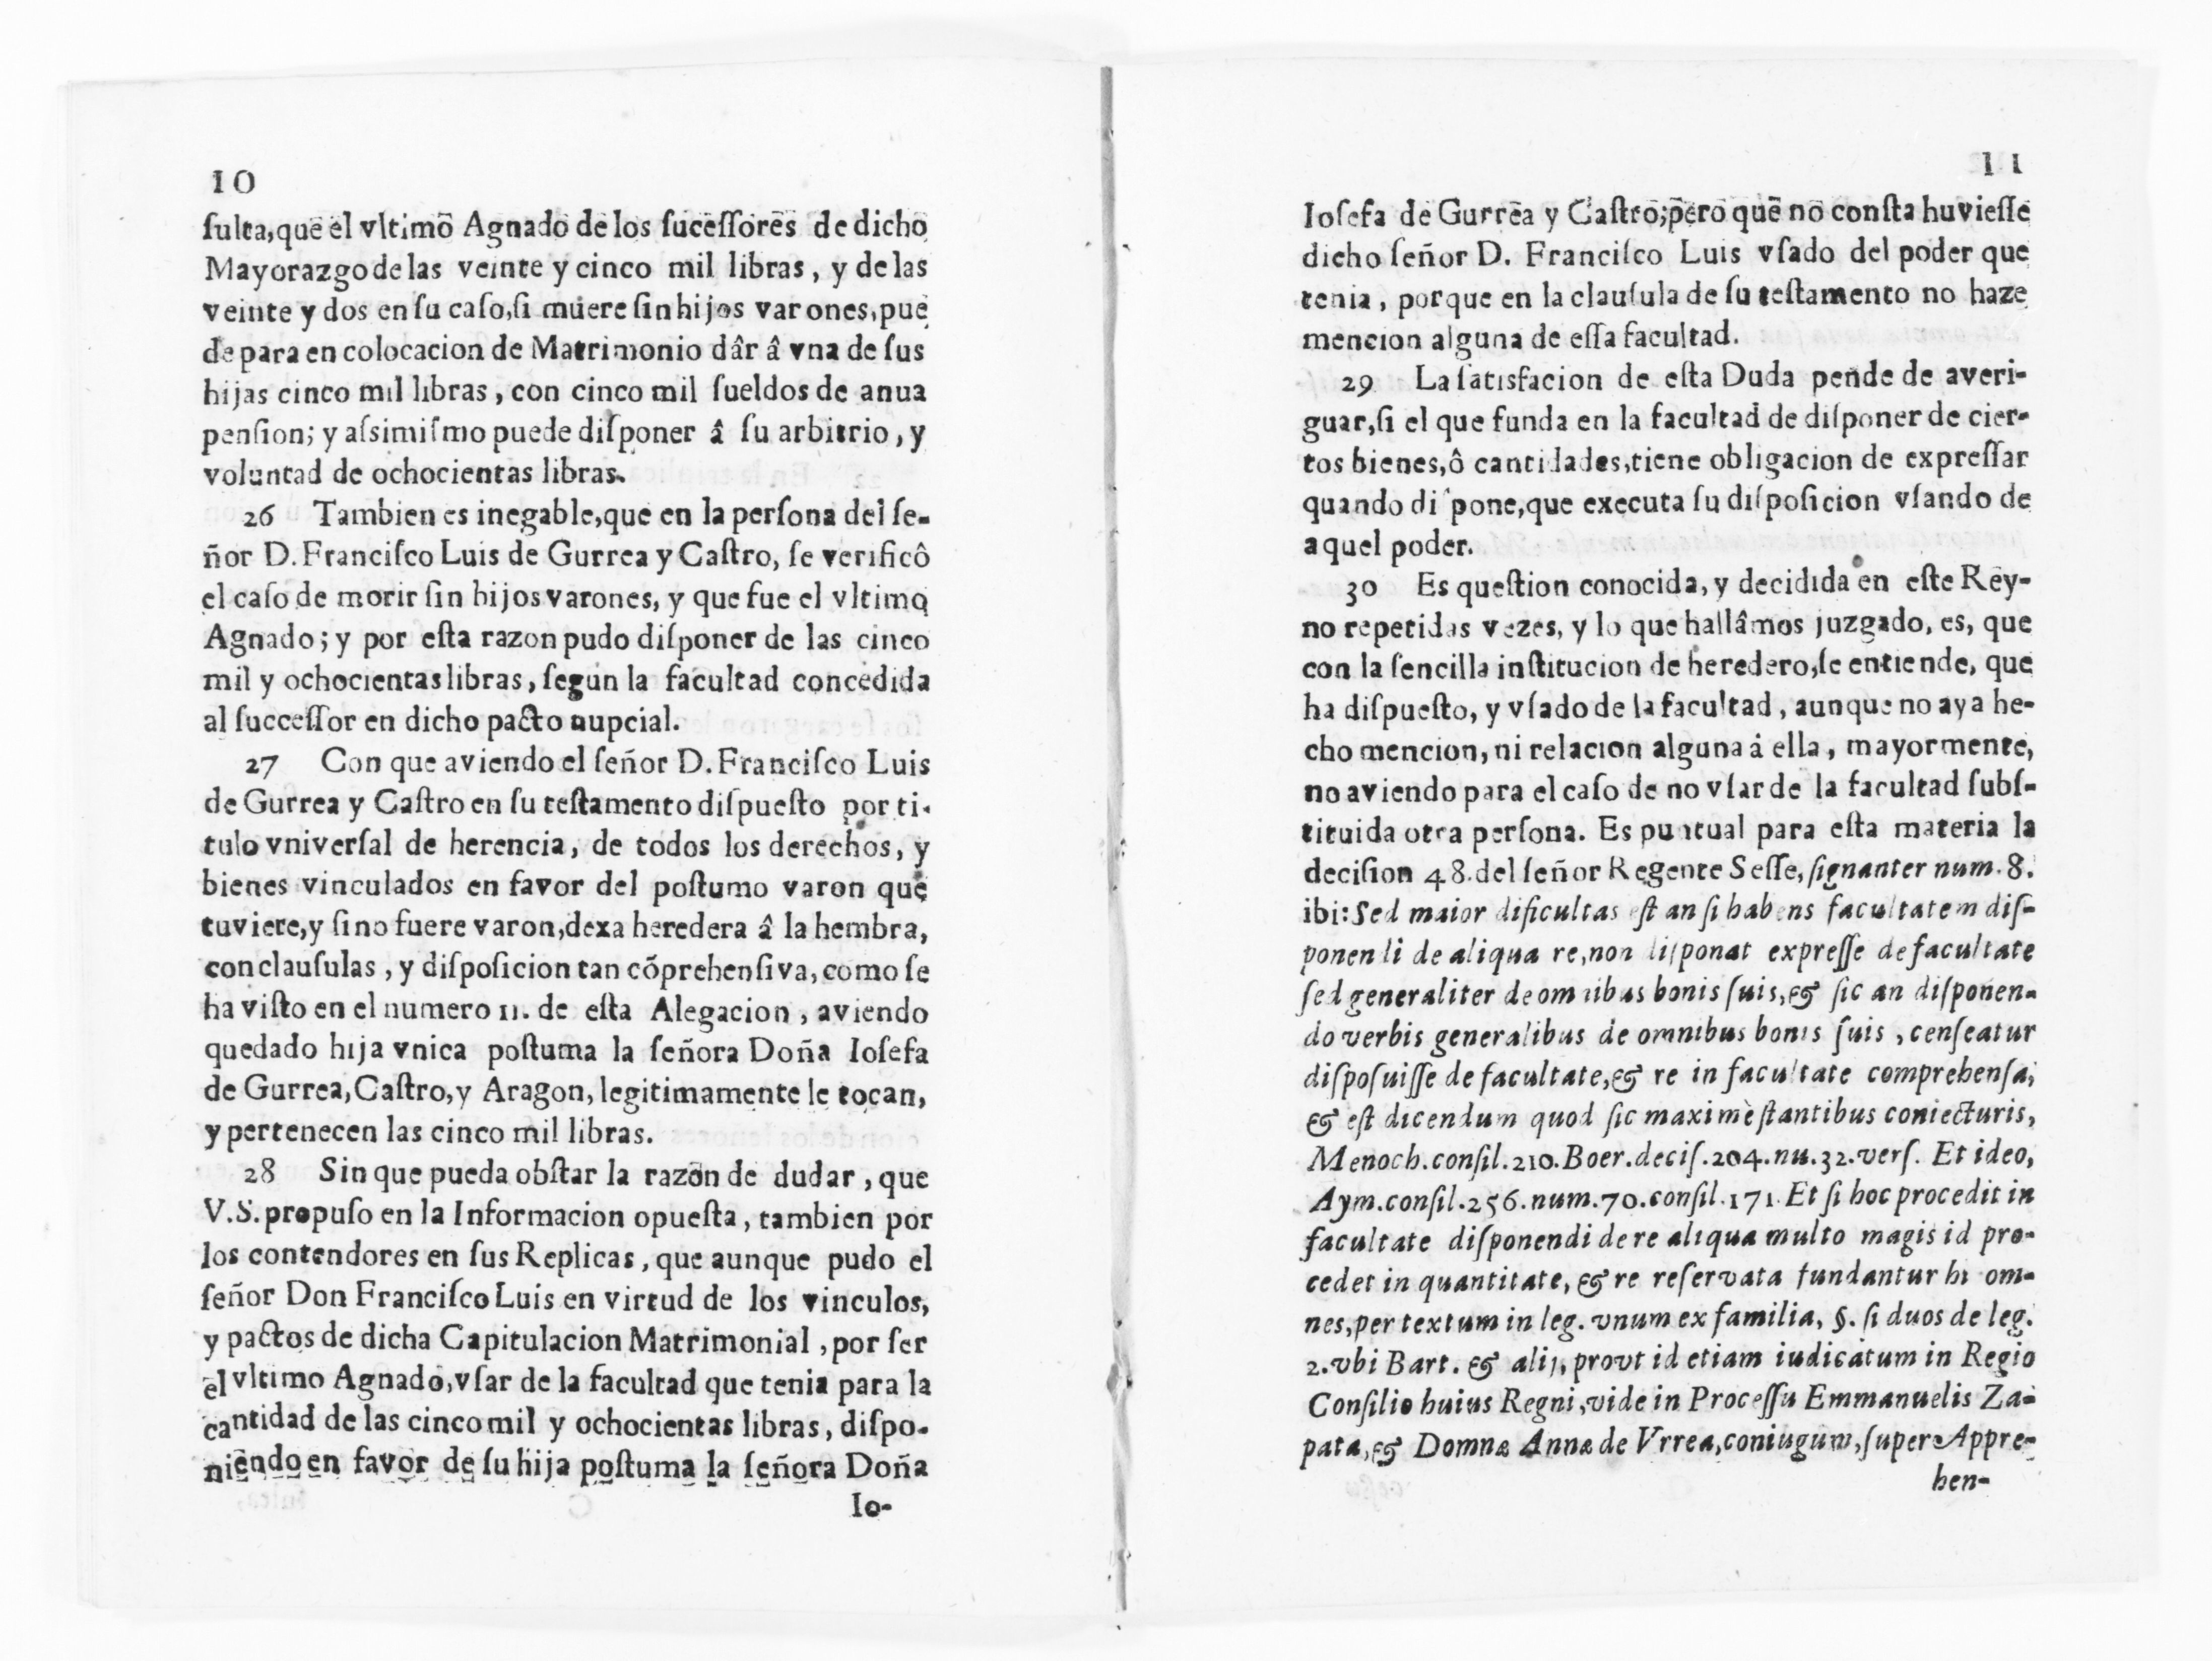 10
ſulta, que el vltimo Agnado de los ſuceſſores de dicho
Mayorazgo de las veinte y cinco mil libras, y de las
veinte y dos en ſu caſo, ſi muere ſin hijos varones, pue
de para en colocacion de Matrimonio dâr â vna de ſus
hijas cinco mil libras, con cinco mil ſueldos de anua
penſion; y aſsimiſmo puede diſponer â ſu arbitrio, y
voluntad de ochocientas libras.
26 Tambien es inegable, que en la perſona del ſe-
ñor D. Franciſco Luis de Gurrea y Caſtro, ſe verificô
el caſo de morir ſin hijos varones, y que fue el vltimo
Agnado; y por eſta razon pudo diſponer de las cinco
mil y ochocientas libras, ſegun la facultad concedida
al ſucceſſor en dicho pacto nupcial.
27 Con que aviendo el ſeñor D. Franciſco Luis
de Gurrea y Caſtro en ſu teſtamento diſpueſto por ti-
tulo vniverſal de herencia, de todos los derechos, y
bienes vinculados en favor del poſtumo varon que
tuviere, y ſi no fuere varon, dexa heredera â la hembra,
con clauſulas, y diſpoſicion tan cõprehenſiva, como ſe
ha viſto en el numero 11. de eſta Alegacion, aviendo
quedado hija vnica poſtuma la ſeñora Doña Ioſefa
de Gurrea, Caſtro, y Aragon, legitimamente le tocan,
y pertenecen las cinco mil libras.
28 Sin que pueda obſtar la razon de dudar, que
V.S. propuſo en la Informacion opueſta, tambien por
los contendores en ſus Replicas, que aunque pudo el
ſeñor Don Franciſco Luis en virtud de los vinculos,
y pactos de dicha Capitulacion Matrimonial, por ſer
el vltimo Agnado, vſar de la facultad que tenia para la
cantidad de las cinco mil y ochocientas libras, diſpo-
niendo en favor de ſu hija poſtuma la ſeñora Doña
Io-
11
Ioſefa de Gurrea y Caſtro; pero que no conſta huvieſſe
dicho ſeñor D. Franciſco Luis vſado del poder que
tenia, porque en la clauſula de ſu teſtamento no haze
mencion alguna de eſſa facultad.
29 La ſatisfacion de eſta Duda pende de averi-
guar, ſi el que funda en la facultad de diſponer de cier-
tos bienes, ô cantidades, tiene obligacion de expreſſar
quando diſpone, que executa ſu diſpoſicion vſando de
aquel poder.
30 Es queſtion conocida, y decidida en eſte Rey-
no repetidas vezes, y lo que hallâmos juzgado, es, que
con la ſencilla inſtitucion de heredero, ſe entiende, que
ha diſpueſto, y vſado de la facultad, aunque no aya he-
cho mencion, ni relacion alguna á ella, mayormente,
no aviendo para el caſo de no vſar de la facultad ſubſ-
tituida otra perſona. Es puntual para eſta materia la
deciſion 48. del ſeñor Regente Seſſe, ſignanter num. 8.
ibi: Sed maior dificultas eſt an ſi habens facultatem diſ-
ponendi de aliqua re, non diſponat expreſſe de facultate
ſed generaliter de omnibus bonis ſuis, & ſic an diſponen-
do verbis generalibus de omnibus bonis ſuis, cenſeatur
diſpoſuiſſe de facultate, & re in facultate comprehenſa,
& eſt dicendum quod ſic maximè ſtantibus coniecturis,
Menoch. conſil. 210. Boer. deciſ. 204. nu. 32. verſ. Et ideo,
Aym. conſil. 256. num. 70. conſil. 171. Et ſi hoc procedit in
facultate diſponendi de re aliqua multo magis id pro-
cedet in quantitate, & re reſervata fundantur hi om-
nes, per textum in leg. vnum ex familia, §. ſi duos de leg.
2. vbi Bart. & alij, provt id etiam iudicatum in Regio
Conſilio huius Regni, vide in Proceſſu Emmanuelis Za-
pata, & Domnæ Annæ de Vrrea, coniugum, ſuper Appre-
hen-